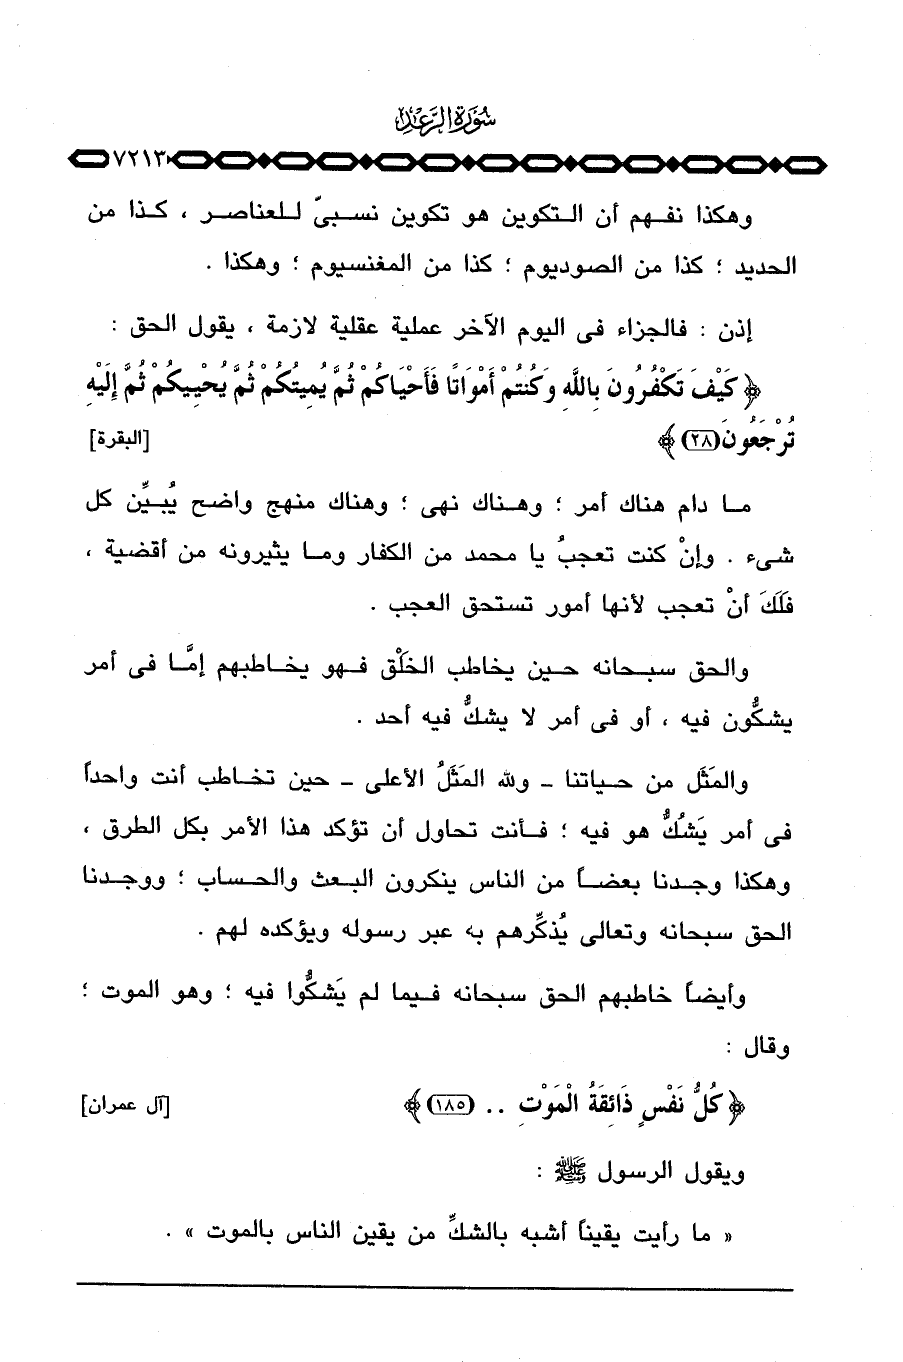 سُورَةُ الرَّعْدِ
٧٢١٣
وهكذا نفهم أن التكوين هو تكوين نسبىّ للعناصر ، كذا من
الحديد ؛ كذا من الصوديوم ؛ كذا من المغنسيوم ؛ وهكذا .
إذن : فالجزاء فى اليوم الآخر عملية عقلية لازمة ، يقول الحق :
﴿ كَيْفَ تَكْفُرُونَ بِاللَّهِ وَكُنتُمْ أَمْوَاتًا فَأَحْيَاكُمْ ثُمَّ يُمِيتُكُمْ ثُمَّ يُحْيِيكُمْ ثُمَّ إِلَيْهِ
تُرْجَعُونَ (٢٨) ﴾ [البقرة]
ما دام هناك أمر ؛ وهناك نهى ؛ وهناك منهج واضح يُبيِّن كل
شىء . وإنْ كنت تعجبُ يا محمد من الكفار وما يثيرونه من أقضية ،
فَلَكَ أنْ تعجب لأنها أمور تستحق العجب .
والحق سبحانه حين يخاطب الخَلْق فهو يخاطبهم إمَّا فى أمر
يشكُّون فيه ، أو فى أمر لا يشكُّ فيه أحد .
والمَثَل من حياتنا - ولله المَثَلُ الأعلى - حين تخاطب أنت واحداً
فى أمر يَشُكُّ هو فيه ؛ فأنت تحاول أن تؤكد هذا الأمر بكل الطرق ،
وهكذا وجدنا بعضاً من الناس ينكرون البعث والحساب ؛ ووجدنا
الحق سبحانه وتعالى يُذكِّرهم به عبر رسوله ويؤكده لهم .
وأيضاً خاطبهم الحق سبحانه فيما لم يَشكُّوا فيه ؛ وهو الموت ؛
وقال :
﴿ كُلُّ نَفْسٍ ذَائِقَةُ الْمَوْتِ .. (١٨٥) ﴾ [آل عمران]
ويقول الرسول ﷺ :
« ما رأيت يقيناً أشبه بالشكِّ من يقين الناس بالموت » .